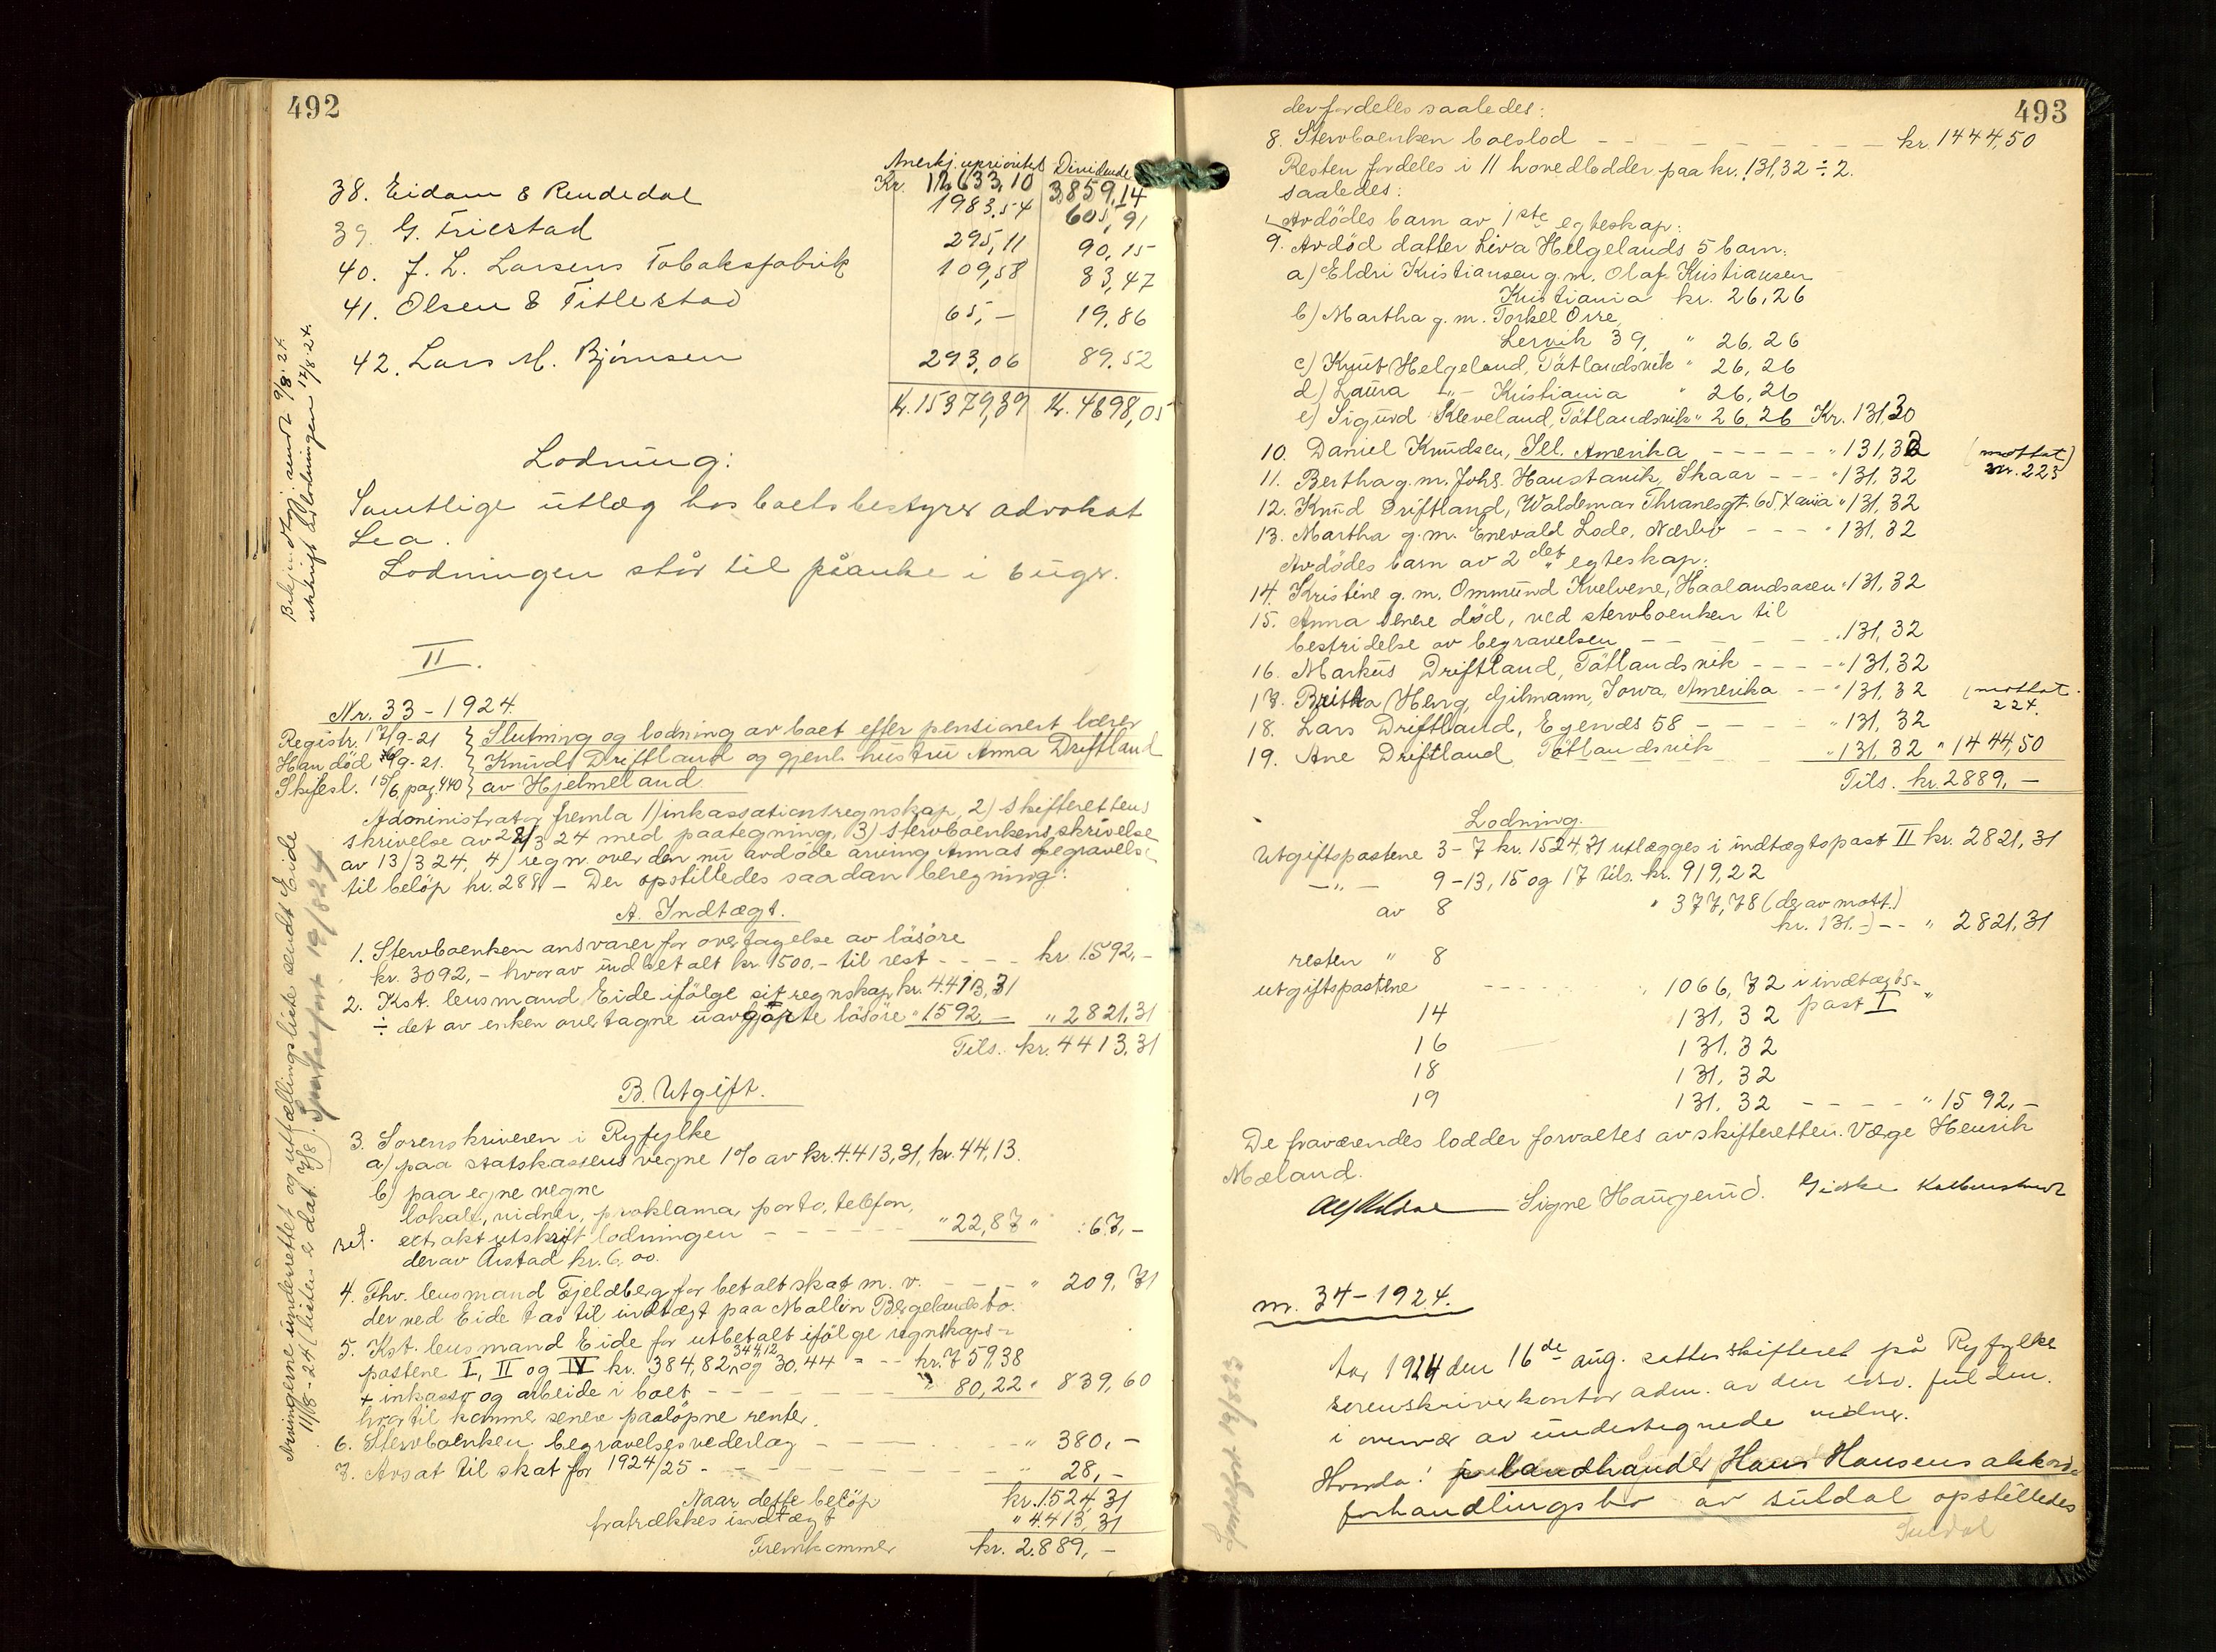 492
Anerkj. uprioritet Dividende
Kr. 12,633,10 3,859,14
38. Eidam & Rendedal 1983.54 605,91
39. G. Friestad 295,11 90,15
40. J. L. Larsens Tobaksfabrik 109,58 33,47
41. Olsen & Titlestad 65,- 19.86
42. Lars M. Bjørnsen 293,06 89.52
Kr. 15379,39 Kr. 4698,05
Lodning:
Samtlige utlæg hos boets bestyrer advokat
Lea.
Lodningen står til påanke i 6 uger.
utskrift av lodningen 12/8-24.
II.
Nr. 33 - 1924.
Registr. 12/9-21 } Slutning og lodning av boet efter pensionert lærer
Han död /9-21. } Knud Driftland og gjenl. hustru Anna Driftland
Skifesl. 15/6 pag. 440 } av Hjelmeland.
Administrator fremla 1) inkassationsregnskap, 2) skifterettens
skrivelse av 28/3 24 med paategning, 3) stervboenkens skrivelse
av 13/3 24, 4) regn. over den nu avdöde arving Annas begravelse
til belöp kr. 288 - Der opstilledes saadan beregning:
A. Indtægt.
1. Stervboenken ansvarer for overtagelse av lösöre
kr. 3092,- hvorav indbetalt kr. 1500,- til rest - - - - kr. 1592,-
2. Kst. lensmand Eide ifölge sit regnskap kr. 4413,31
÷ det av enken overtagne uavgjorte lösöre " 1592,- " 2821,31
Tils. kr. 4413,31
B. Utgift.
3. Sorenskriveren i Ryfylke
a) paa statskassens vegne 1% av kr. 4.413,31, kr. 44,13.
b) paa egne vegne
lokale, vidner, proklama, porto, telefon,
extrakt utskrift lodningen - - - - " 22,87 " : 67,-
derav Aastad kr. 6,00.
4. Fhv. lensmand Fjeldberg for betalt skat m. v. - - - " 209,71
der ved Eide tas til indtægt paa Mallin Bergelands bo.
5. Kst. lensmand Eide for utbetalt ifölge regnskaps-
postene I, II og IV kr. 384,82, 344,12 og 30.44 = - - kr. 759,38
+ inkasso og arbeide i boet - - - - - " 80,22 " 839,60
hvortil kommer senere paalöpne renter.
6. Stervboenken begravelsesvederlag - - - - - " 380,-
7. Avsat til skat for 1924/25 - - - - - - " 28,-
Naar dette belöp kr. 1.524,31
fratrækkes indtægt " 4.413,31
Fremkommer kr. 2.889,-
Arvingerne underrettet og uttællingsliste sendt Eide
11/8-24 (listen er dat. 7/8). Sportelfört 19/8 24
493
der fordeles saaledes:
8. Stervboenken boeslod - - - - - - - kr. 1444,50
Resten fordeles i 11 hovedlodder paa kr. 131,32 ÷ 2.
saaledes:
Avdödes barn av 1ste egteskap:
9. Avdöd datter Liva Helgelands 5 barn:
a) Eldri Kristiansen g. m. Olaf Kristiansen
Kristiania kr. 26,26
b) Martha g. m. Torkel Orre,
Lervik 39, " 26,26
c) Knut Helgeland, Tötlandsvik " 26,26
d) Laura -"- Kristiania " 26,26
e) Sigurd Kleveland, Tötlandsvik " 26,26 Kr. 131,30
10. Daniel Knudsen, Sel. Amerika - - - - - " 131,32 (mottat)
nr. 223
11. Bertha g. m. Johs. Haustavik, Skaar - - - " 131,32
12. Knud Driftland, Waldemar Thranesgt. 65, Xania " 131,32
13. Martha g. m. Enevald Lode, Nærbö - - - " 131,32
Avdödes barn av 2det egteskap:
14. Kristine g. m. Ommund Kvelvene, Haalandsosen " 131,32
15. Anna senere död, ved stervboenken til
bestridelse av begravelsen - - - - - " 131,32
16. Markus Driftland, Tötlandsvik - - - - " 131,32
17. Britha Herg, Gilmann, Iowa, Amerika - - " 131,32 (mottat.
224.
18. Lars Driftland, Egends 58 - - - - - " 131,32
19. Ane Driftland, Töttlandsvik " 131,32 " 1444,50
Tils. kr. 2889,-
Lodning.
Utgiftspostene 3-7 kr. 1524,31 utlægges i indtægtspost II kr. 2821,31
-"- 9-13, 15 og 17 tils. kr. 919,22
av 8 " 377,78 (derav mott.)
kr. 131.-) - - " 2821,31
resten " 8
utgiftspostene - - - - - 1066,72 i indtægts-
post I "
14 131,32
16 131,32
18 131,32
19 131,32 - - - - " 1592,-
De fraværendes lodder forvaltes av skifteretten. Væge Henrik
Mæland.
Signe Haugerud.
nr. 34-1924.
Aar 1924 den 16de aug. sattes skifteret på Ryfylke
sorenskriverkontor adm. av den edsv. fuldm.
i overvær av undertegnede vidner.
Hvorda: I landhandler Hans Hansens akkord-
forhandlingsbo av Suldal opstilledes
Suldal
Sportelfört 19/8 25